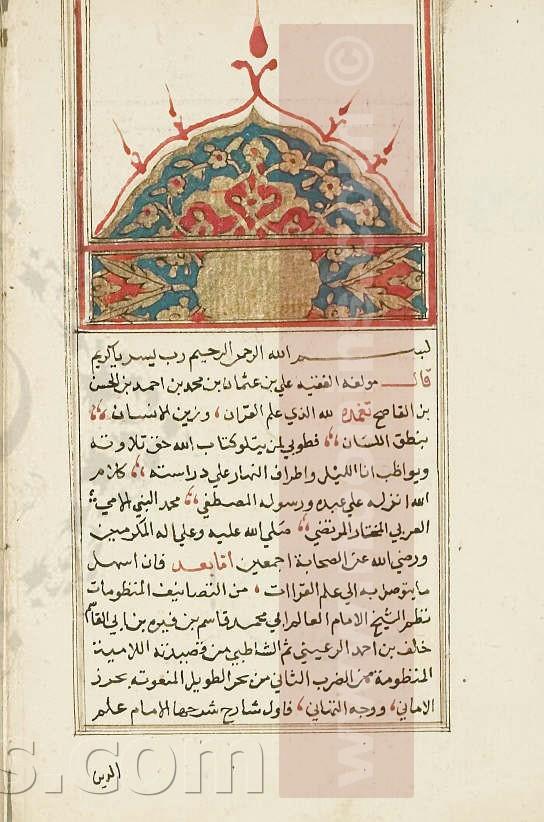 بسم الله الرحمن الرحيم رب يسر ياكريم
قال مولفه الفقيه علي بن عثمان بن محمد بن احمد بن الحسن
بن القاصح الله الذي علم القران ، وزين الانسان
بنطق اللسان ، فطوبي لمن يتلو كتاب الله حق تلاوته
ويواظب انا الليل واطراف النهار علي دراسته ، كلام
الله انزله علي عبده ورسوله المصطفي ، محمد النبي الامي
العربي المختار المرتضي ، صلي الله عليه وعلي اله المكرمين
ورضي الله عن الصحابة اجمعين اما بعد فان اسهل
ما يتوصل به الي علم القراات ، من التصانيف المنظومات
نظم الشيخ الامام العالم ابي محمد قاسم بن فيره بن ابي القاسم
خلف بن احمد الرعيني ثم الشاطبي من قصيدته اللامية
المنظومة من الضرب الثاني من بحر الطويل المنعوته بحرز
الاماني ، ووجه التهاني ، فاول شارح شرحها الامام علم
الدين
s.com